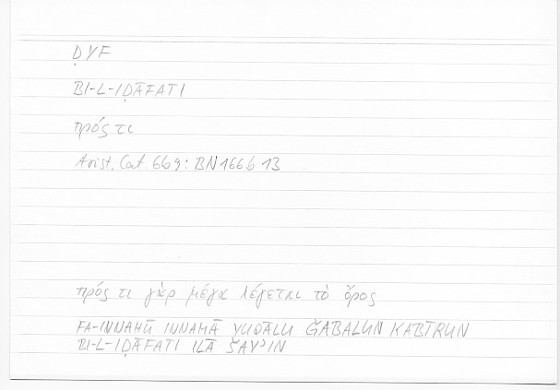 ḌYF
BI-L-IḌĀFATI
πρός τι
Arist. Cat 6b9: BN 166b13
πρός τι γὰρ μέγα λέγεται τὸ ὄρος
FA-INNAHŪ INNAMĀ YUQĀLU ǦABALUN KABĪRUN
BI-L-IḌĀFATI ILĀ ŠAYʾIN